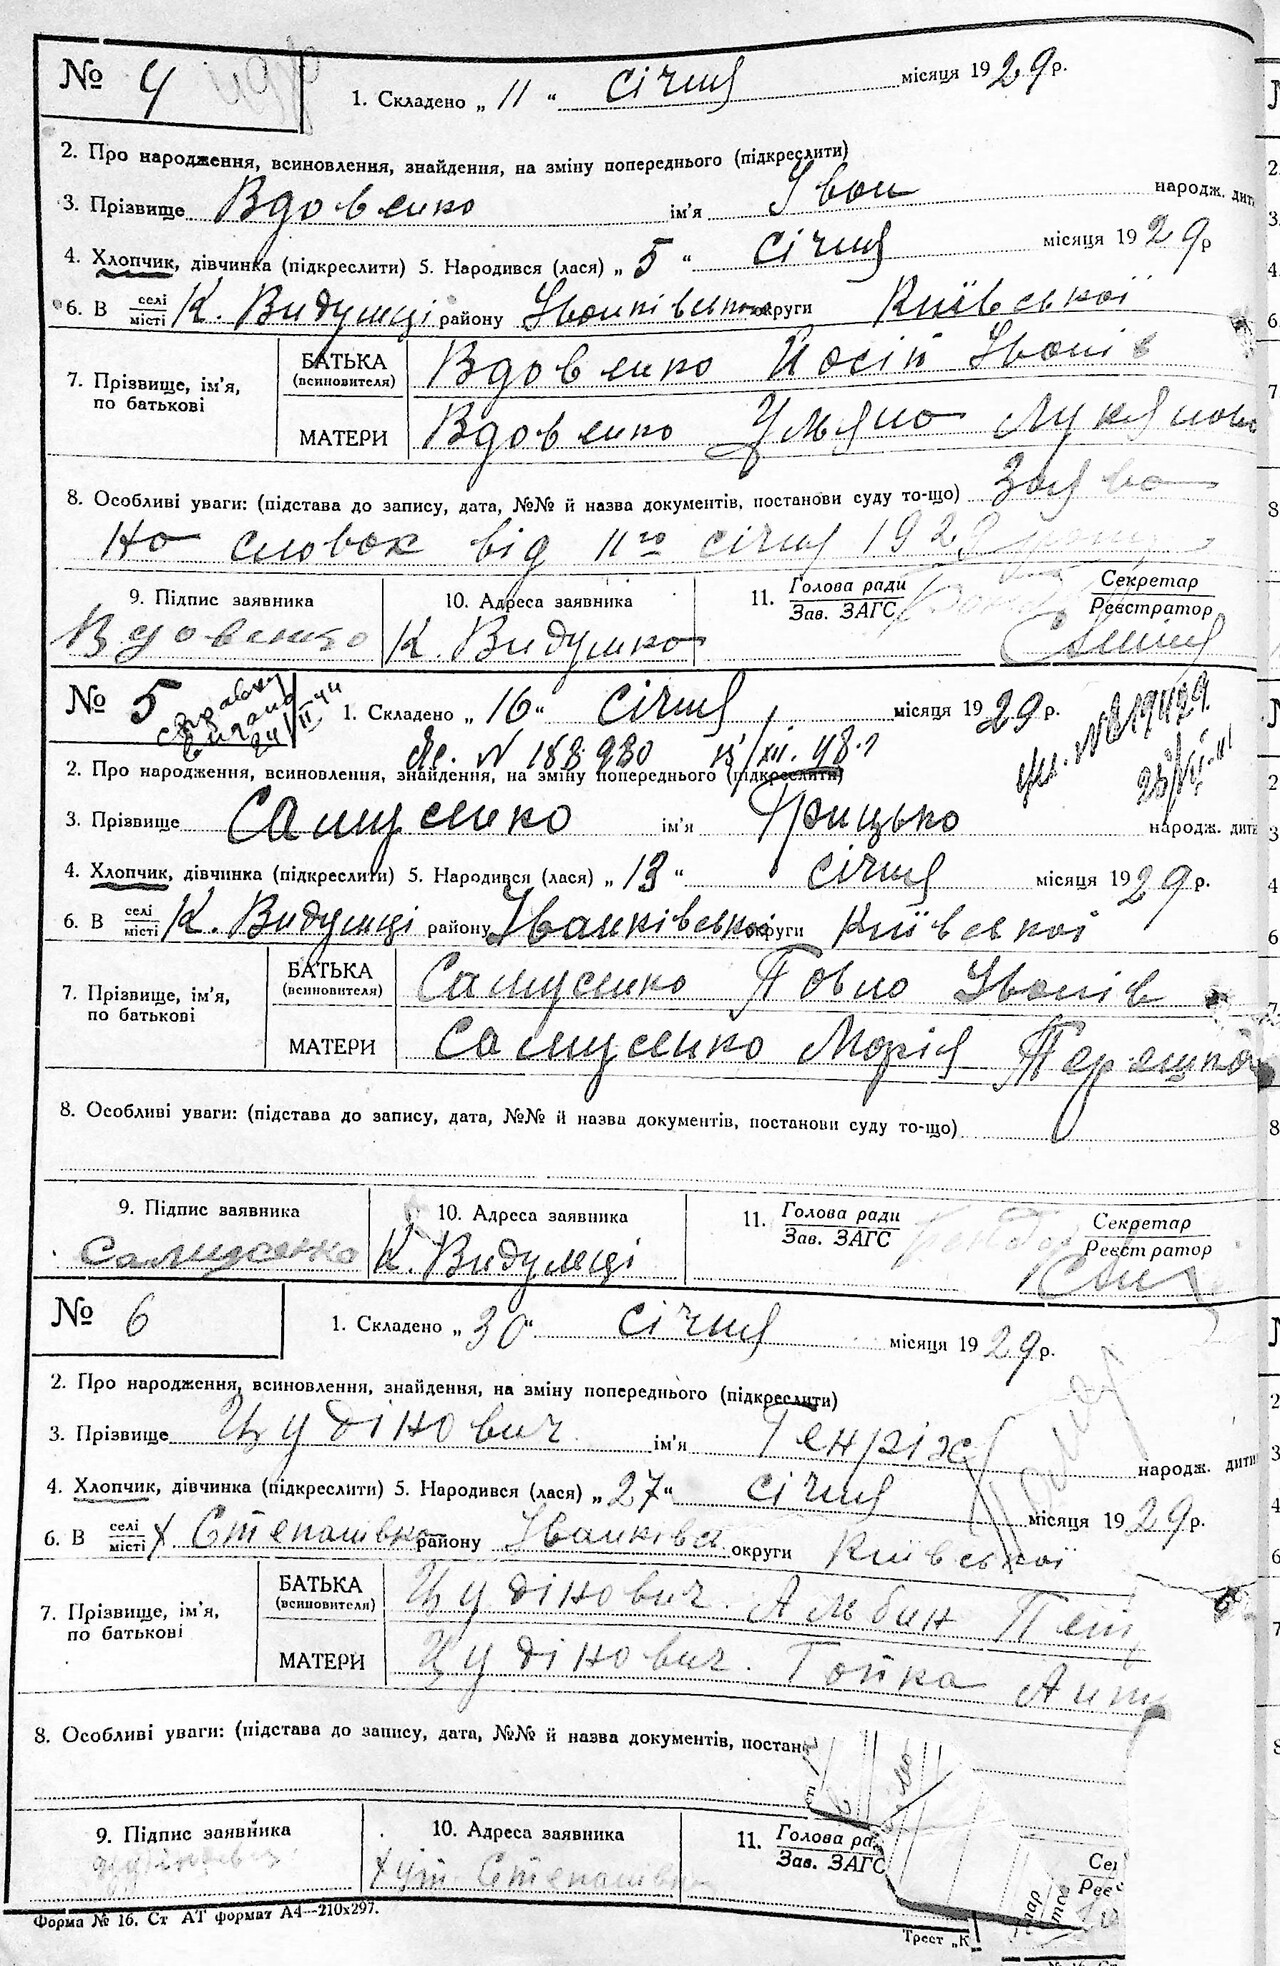 № 4
1. Складено „ 11 “ січня місяця 1929 р.
2. Про народження, всиновлення, знайдення, на зміну попереднього (підкреслити)
3. Прізвище Вдовенко ім'я Іван народж. дити
4. Хлопчик, дівчинка (підкреслити) 5. Народився (лася) „ 5 “ січня місяця 1929 р
6. В селі місті К. Видумці району Іванківсько округи Київської
7. Прізвище, ім'я, по батькові
БАТЬКА (всиновителя) Вдовенко Йосіп Іванів
МАТЕРИ Вдовенко Ульяна Лукянов
8. Особливі уваги: (підстава до запису, дата, №№ й назва документів, постанови суду то-що) Заява
на словах від 11го січня 1929 року
9. Підпис заявника 10. Адреса заявника 11. Голова ради Зав. ЗАГС Секретар Реєстратор
Вдовенко К. Видумка
№ 5
справку видано 24/II 44
1. Складено „ 16 “ січня місяця 1929 р.
№ 188930 XII. 48 г
2. Про народження, всиновлення, знайдення, на зміну попереднього (підкреслити)
3. Прізвище Самусенко ім'я Грицько народж. дити
4. Хлопчик, дівчинка (підкреслити) 5. Народився (лася) „ 13 “ січня місяця 1929 р.
6. В селі місті К. Видумці району Іванківсько округи Київської
7. Прізвище, ім'я, по батькові
БАТЬКА (всиновителя) Самусенко Павло Іванів
МАТЕРИ Самусенко Марія Терешков
8. Особливі уваги: (підстава до запису, дата, №№ й назва документів, постанови суду то-що)
9. Підпис заявника 10. Адреса заявника 11. Голова ради Зав. ЗАГС Секретар Реєстратор
Самусенко К. Видумці
№ 6
1. Складено „ 30 “ січня місяця 1929 р.
2. Про народження, всиновлення, знайдення, на зміну попереднього (підкреслити)
3. Прізвище Цудінович ім'я Генріх народж. дити
4. Хлопчик, дівчинка (підкреслити) 5. Народився (лася) „ 27 “ січня місяця 1929 р.
6. В селі місті х Степанівка району Іванківсь округи Київської
7. Прізвище, ім'я, по батькові
БАТЬКА (всиновителя) Цудінович Альбин Пет
МАТЕРИ Цудінович Гопка Ант
8. Особливі уваги: (підстава до запису, дата, №№ й назва документів, постан
9. Підпис заявника 10. Адреса заявника 11. Голова ра Зав. ЗАГС
хут Степанівка
Форма № 16. Ст АТ формат А4—210х297.
Трест „К